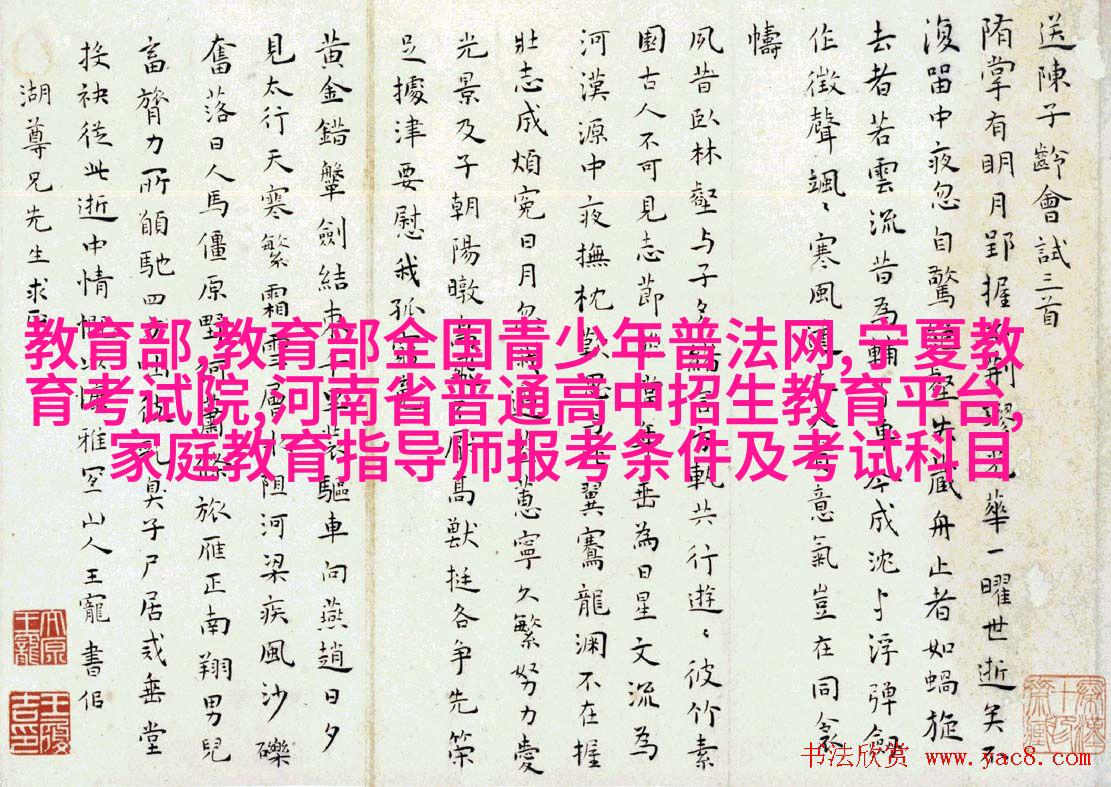 送陳子齡會試三首
隋掌有明月郢握荆璆光華一曜世逝矣不
復留中夜忽自驚壑失藏舟止者如蝸旋
去者若雲流昔為今成沈与浮弹劔
作徵聲颯〻寒風意氣豈在同衾
幬
夙昔卧林壑与子夕方軌共行遊〻彼竹素
園古人不可見志節垂為日星文流為
河漢源中夜撫枕翼骞龍渊不在握
壯志成煩寃日月忽蕙寧久繁努力慶
光景及子朝陽暾高獸挺各争先策
足據津要慰我孤
黄金錯鞶劍結束装驅車向燕趙日夕
見太行天寒繁霜雪層阻河梁疾風沙礫
奮落日人馬僵原野何蕭條旅雁正南翔男兒
畜膂力所願馳四方子尸居戒垂堂
袂從此逝中情慨以慷雅宜山人王寵書
湖尊兄先生求正
教育部,教育部全国青少年普法网,宁夏教
育考试院,河南省普通高中招生教育平台,
家庭教育指导师报考条件及考试科目
书法欣赏 www.yac8.com